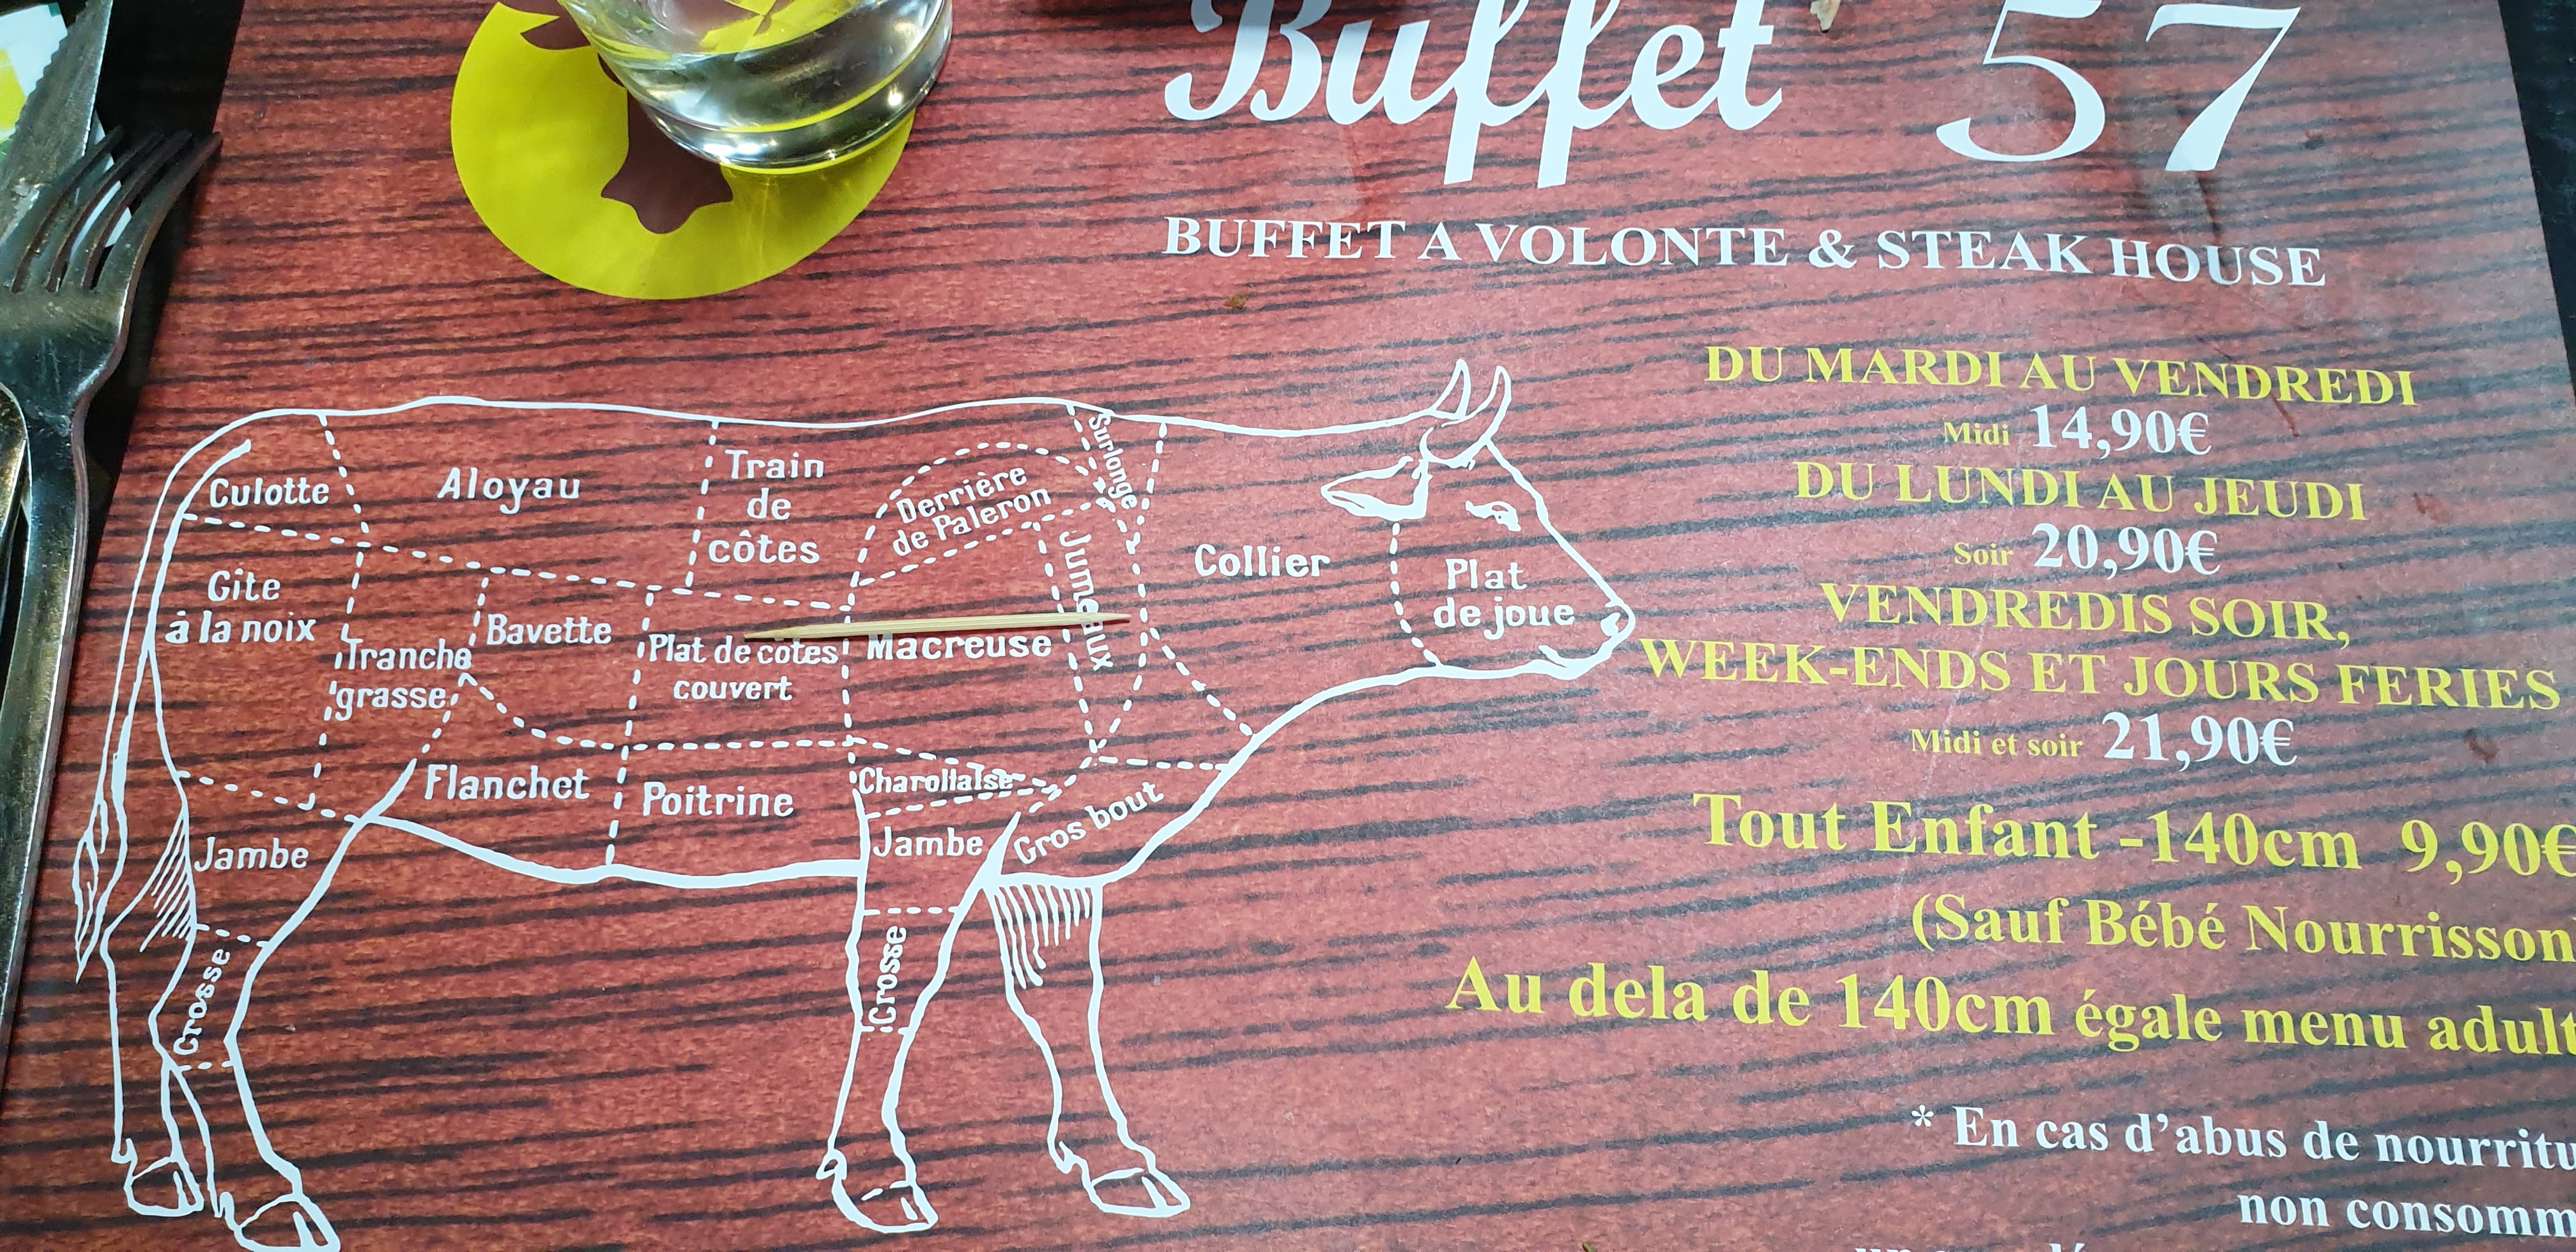 Buffet 57
BUFFET A VOLONTE & STEAK HOUSE
DU MARDI AU VENDREDI
Midi 14,90€
DU LUNDI AU JEUDI
Soir 20,90€
VENDREDIS SOIR,
WEEK-ENDS ET JOURS FERIES
Midi et soir 21,90€
Tout Enfant -140cm 9,90€
(Sauf Bébé Nourrisson
Au dela de 140cm égale menu adult
* En cas d’abus de nourritu
non consomm
Culotte
Aloyau
Train
de
côtes
Derrière
de Paleron
Surlonge
Jumeaux
Collier
Plat
de joue
Gite
à la noix
Tranche
grasse
Bavette
Plat de cotes
couvert
Macreuse
Flanchet
Poitrine
Charollaise
Gros bout
Jambe
Jambe
Crosse
Crosse